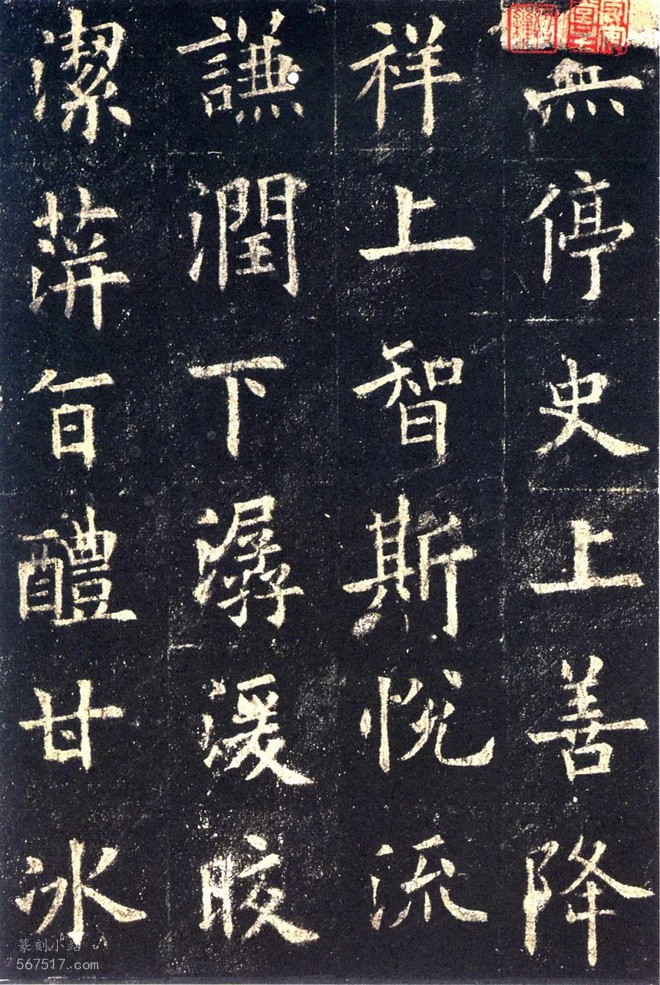 無停史上善降
祥上智斯悅流
謙潤下潺湲晈
潔蓱旨醴甘冰
篆刻小站
567517.com